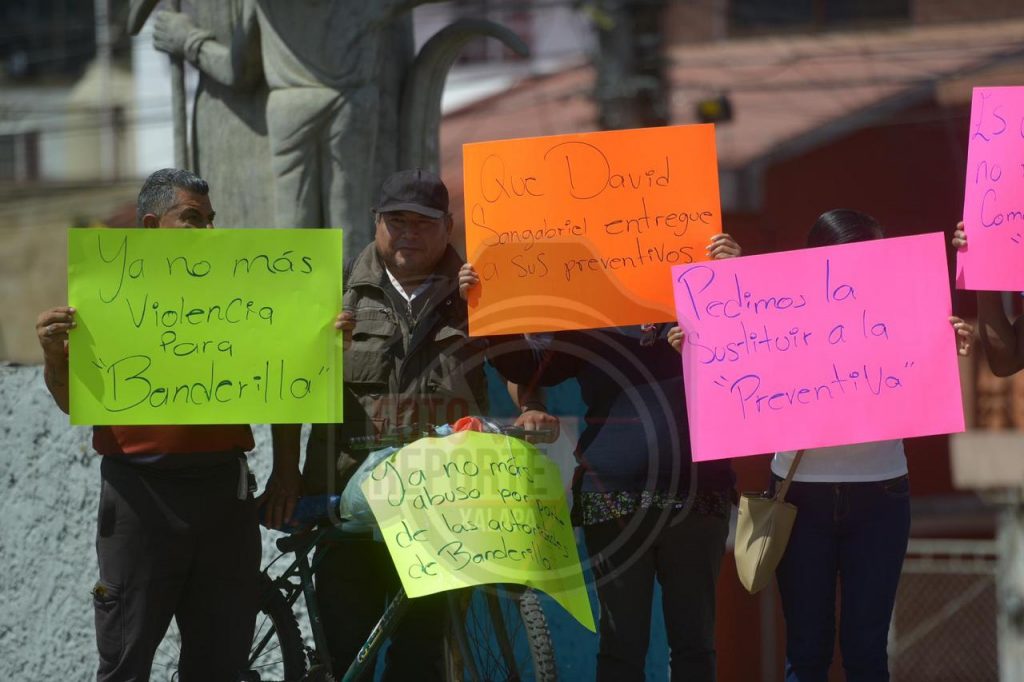 Ya no más
Violencia
Para
"Banderilla"
Que David
Sangabriel entregue
a sus preventivos
Pedimos la
Sustituir a la
"Preventiva"
Ya no más
abuso por
de las autoridades
de Banderilla
no
FOTO
DEPORTE
XALAPA